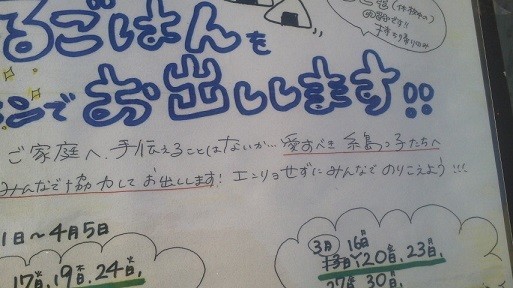 (休校中の)
るごはんを
でお出しします!!
ご家庭へ、手伝えることはないか… 愛すべき糸島っ子たちへ
みんなで協力してお出しします! エンリョせずにみんなでのりこえよう!!!
1日〜4月5日
17㊋, 19㊍, 24㊋,
3月 16㊊
20㊎, 23㊊,
27㊎ 30㊊